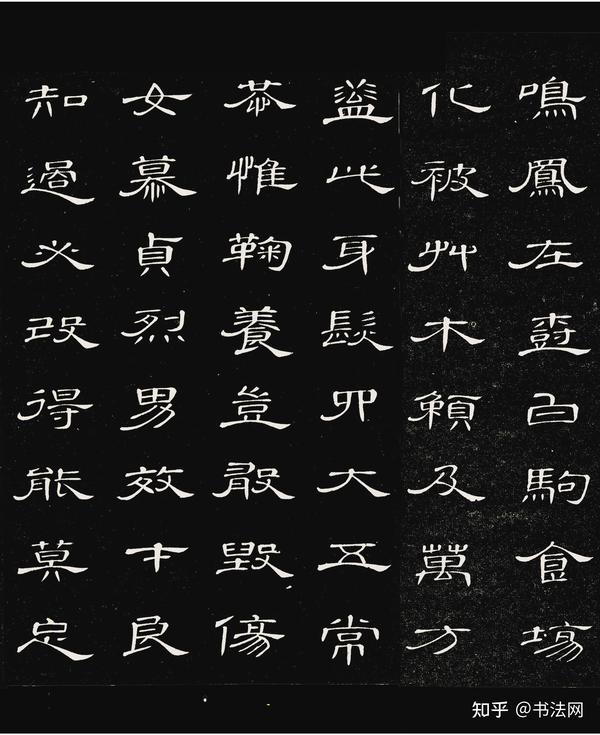 鳴鳳在樹白駒食場
化被艸木賴及萬方
蓋此身髮四大五常
恭惟鞠養豈敢毀傷
女慕貞烈男效才良
知過必改得能莫忘
知乎 @书法网